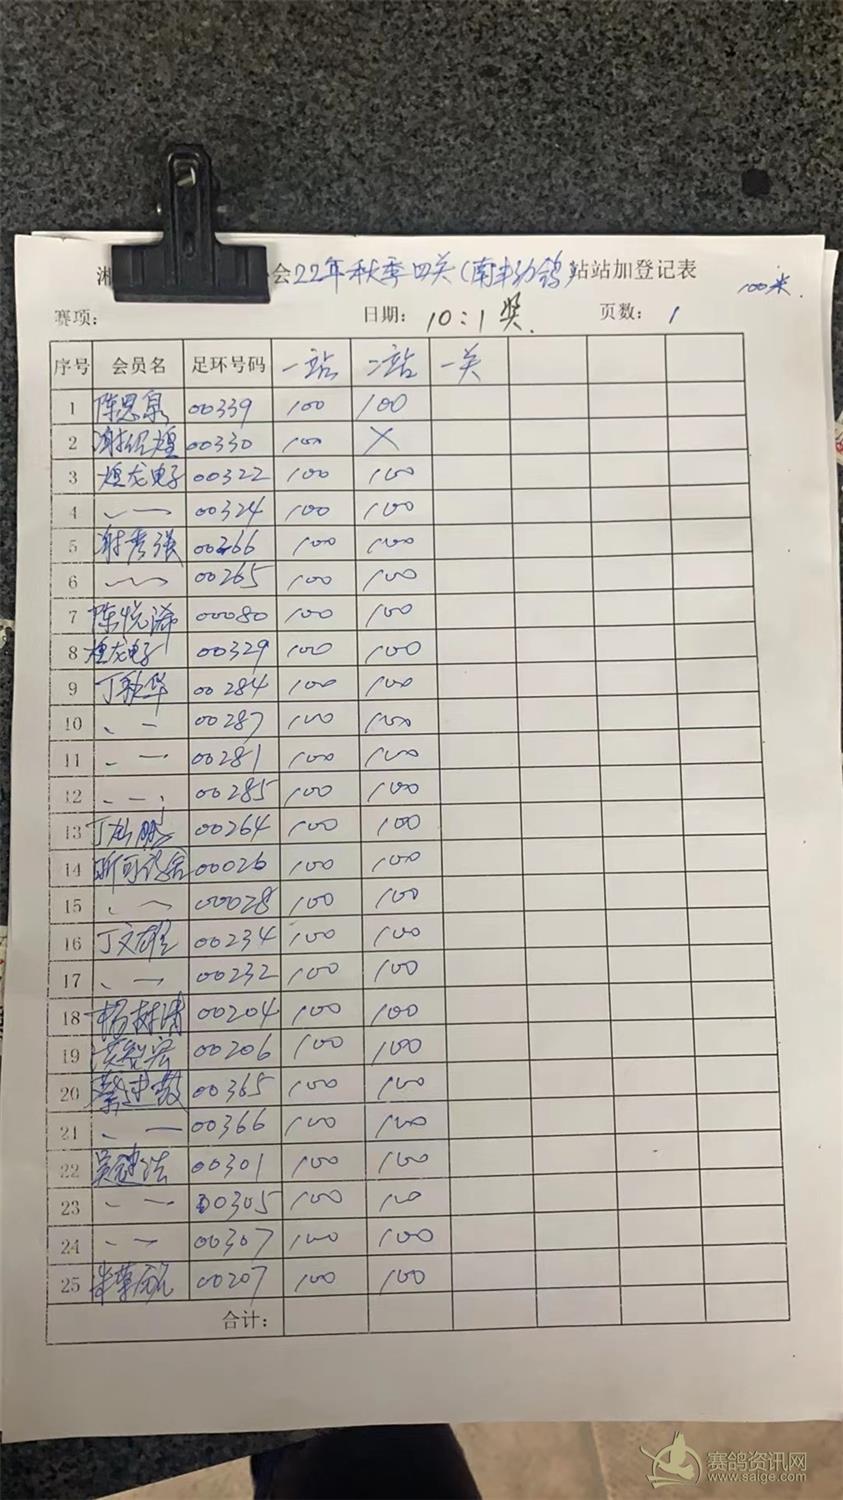 会22年秋季四关(南丰幼鸽)站站加登记表
100米.
赛项: 日期: 10:1奖. 页数: 1
序号 会员名 足环号码 一站 二站 一关
1 陈思泉 00339 100 100
2 谢绍煌 00330 100 ×
3 煌龙电子 00322 100 100
4 00324 100 100
5 谢秀强 00266 100 100
6 00265 100 100
7 陈悦 00080 100 100
8 煌龙电子 00329 100 100
9 丁 华 00284 100 100
10 00287 100 100
11 00281 100 100
12 00285 100 100
13 丁 鹏 00264 100 100
14 00026 100 100
15 00028 100 100
16 丁文雄 00234 100 100
17 00232 100 100
18 杨树清 00204 100 100
19 宏 00206 100 100
20 蔡建 00365 100 100
21 00366 100 100
22 吴 00301 100 100
23 00305 100 100
24 00307 100 100
25 00207 100 100
合计:
赛鸽资讯网
www.saige.com